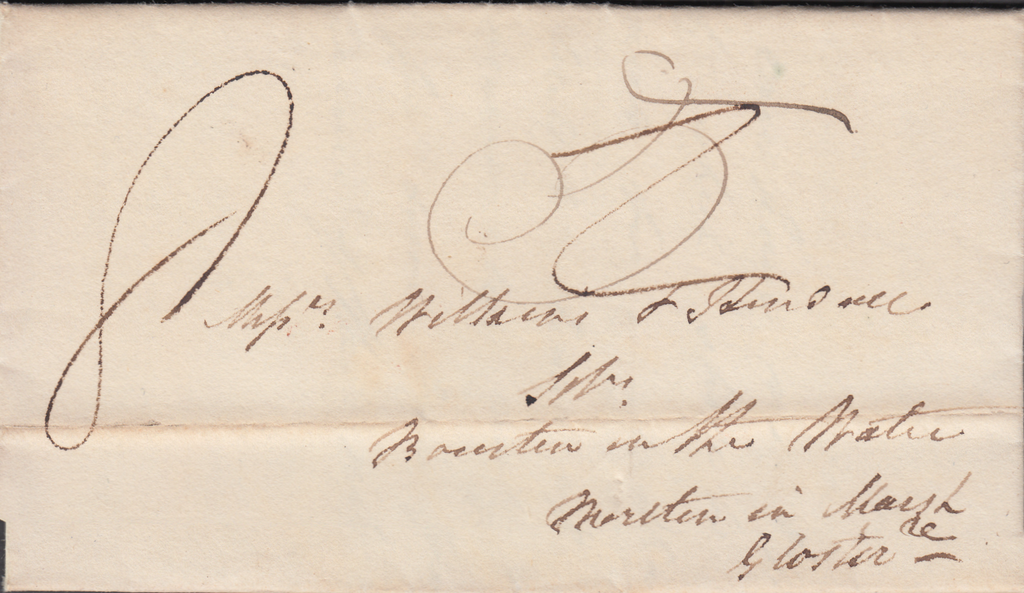 8
Messrs. Wilkins & Kendall
Solrs.
Bourton in the Water
Moreton in Marsh
Glosterre